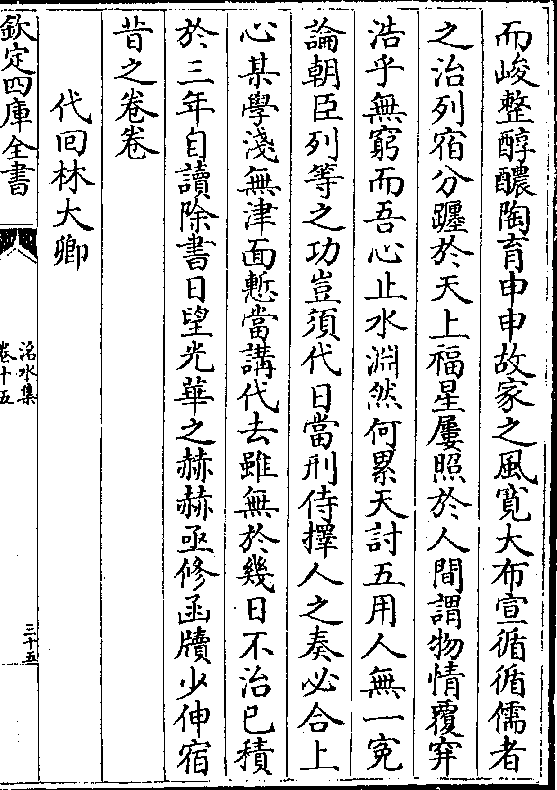 而峻整醇醲陶育申申故家之風寛大布宣循循儒者
之治列宿分躔於天上福星屢照於人間謂物情覆穽
浩乎無窮而吾心止水淵然何累天討五用人無一寃
論朝臣列等之功豈須代日當刑侍擇人之奏必合上
心某學淺無津面慙當講代去雖無於幾日不治已積
於三年自讀除書日望光華之赫赫亟修函牘少伸宿
昔之卷卷
代回林大卿
欽定四庫全書
洺水集
卷十五
三十五